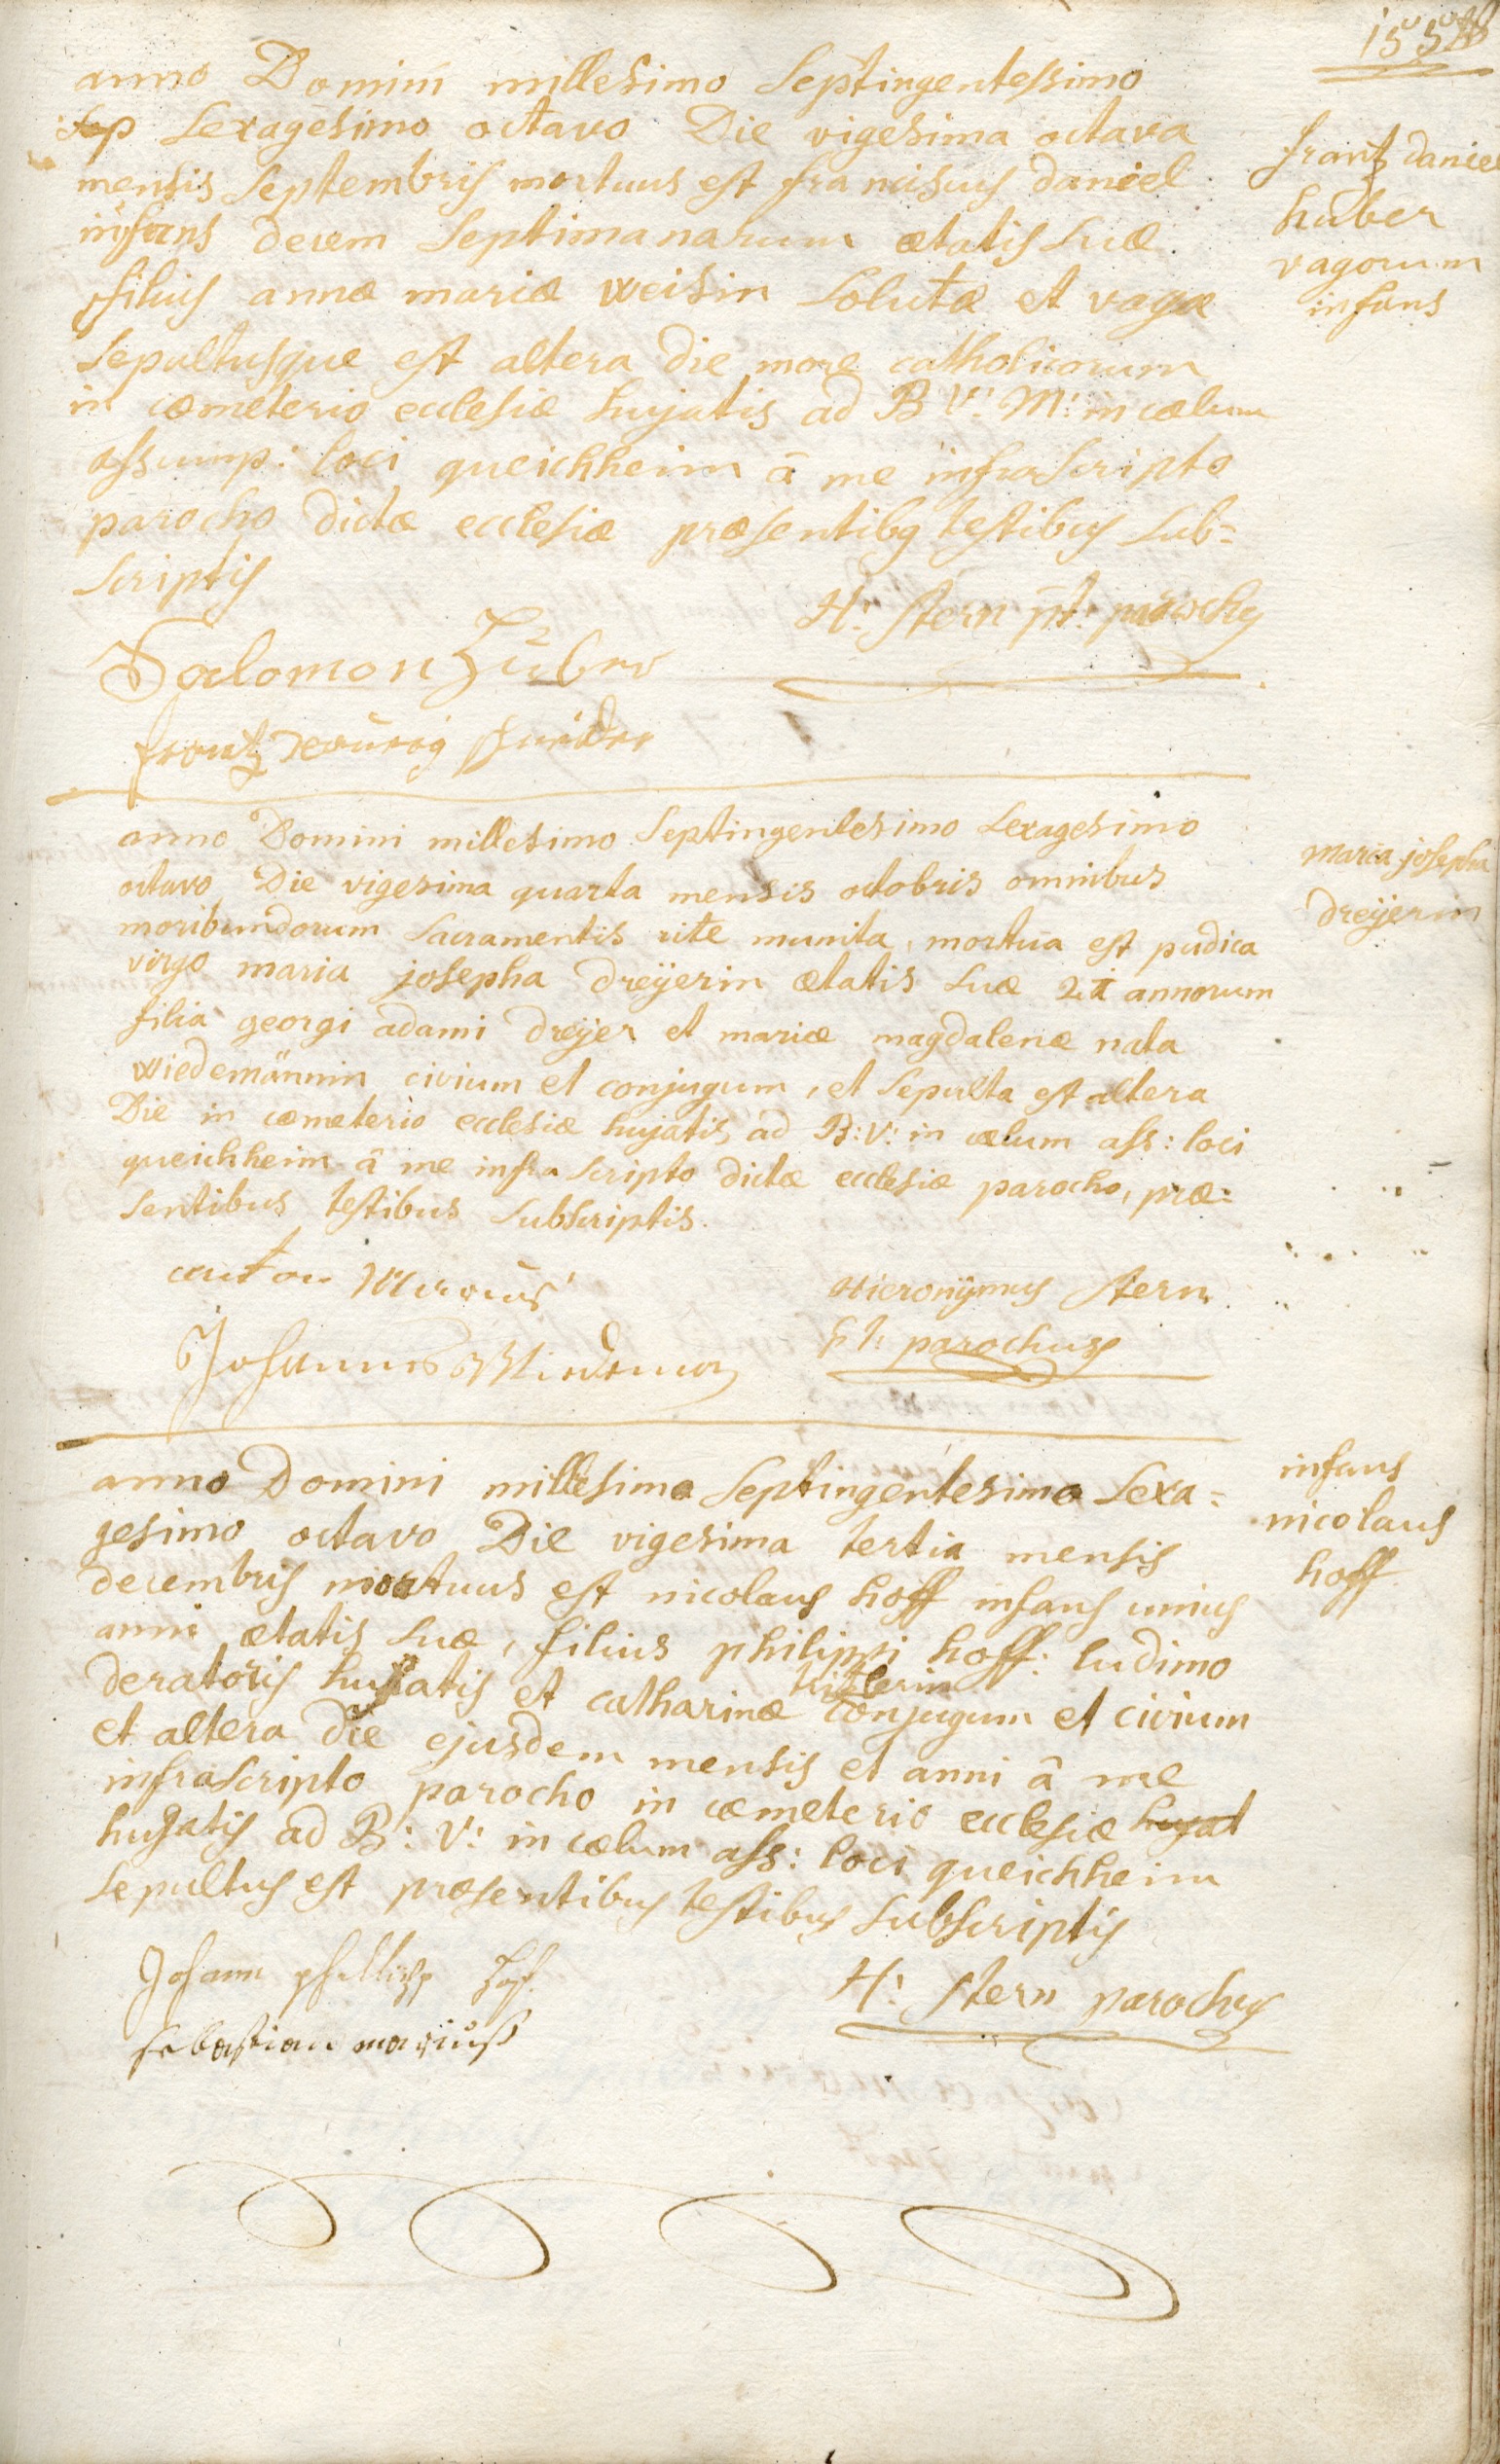 anno Domini millesimo Septingentessimo
Sep Sexagesimo octavo Die vigesima octava
mensis Septembris mortuus est franciscus daniel
infans decem Septimanarum ætatis Suæ
filius annæ mariæ weisin Solutæ et vagæ
Sepultusque est altera die more catholicorum
in cæmeterio ecclesiæ hujatis ad B V: M: in cælum
assump: loci queichheim â me infraScripto
parocho dictæ ecclesiæ præsentibg testibus Sub=
scriptis
H: Stern pt: parochus
Salomon Huber
frantz
frantz daniel
huber
vagorum
infans
anno Domini millesimo Septingentesimo Sexagesimo
octavo Die vigesima quarta mensis octobris omnibus
moribundorum Sacramentis rite munita, mortua est pudica
virgo maria josepha dreÿerin ætatis Suæ annorum
filia georgi adami dreÿer et mariæ magdalenæ nata
wiedemännin civium et conjugum, et Sepulta est altera
Die in cæmeterio ecclesiæ hujatis, ad B: V: in cælum ass: loci
queichheim â me infra Scripto dictæ ecclesiæ parocho, præ=
sentibus testibus Subscriptis.
anton Marius
Hieronÿmus Stern
pt: parochus
Johannes Wiedeman
maria josepha
dreÿerin
anno Domini millesimo Septingentesimo Sexa=
gesimo octavo Die vigesima tertia mensis
decembris mortuus est nicolaus hoff infans unius
anni ætatis Suæ, filius philippi hoff: ludimo
deratoris hujatis et catharinæ conjugum et civium
et altera die ejusdem mensis et anni â me
infraScripto parocho in cæmeterio ecclesiæ hujat
hujatis ad B: V: in cælum ass: loci queichheim
Sepultus est præsentibus testibus Subscriptis
Johann phillipp Hoff
H: Stern parochus
sebastian mariuß
infans
nicolaus
hoff